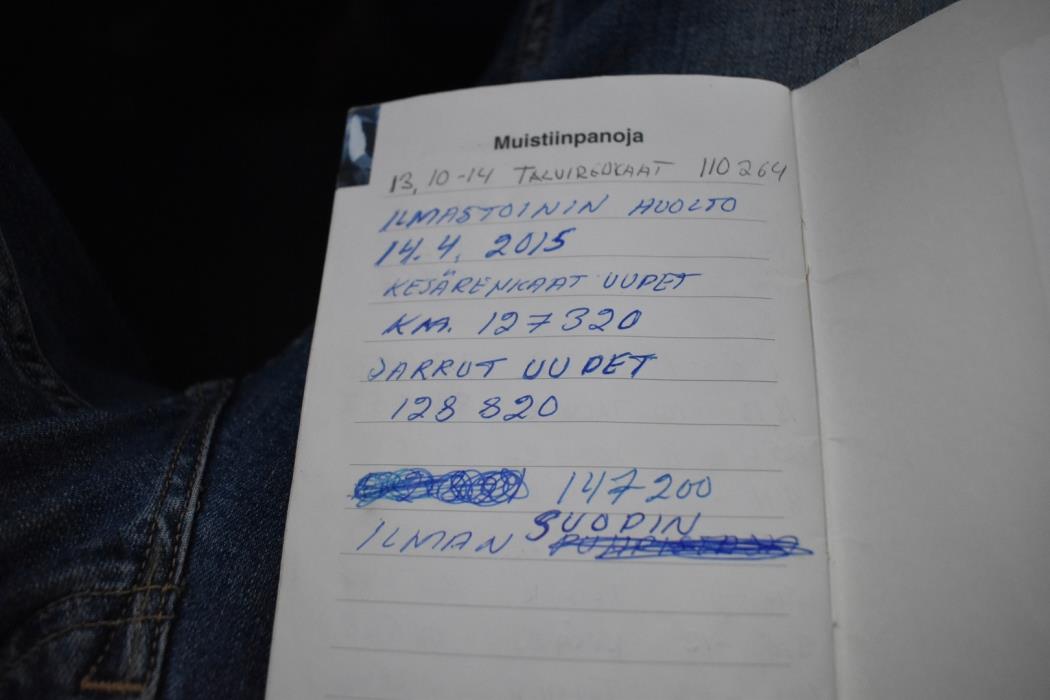 Muistiinpanoja
13,10-14 TALVIRENKAAT 110264
ILMASTOININ HUOLTO
14.4. 2015
KESÄRENKAAT UUDET
KM. 127320
JARRUT UUDET
128 820
147200
SUODIN
ILMAN